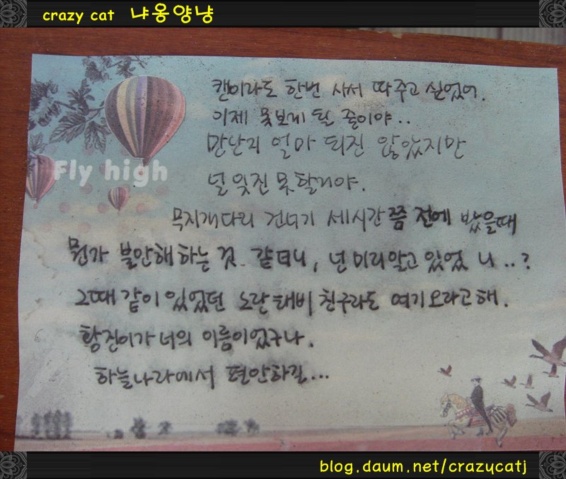 crazy cat 냐옹양냥
캔이라도 한번 사서 따주고 싶었어.
이제 못보게 될 줄이야..
만난지 얼마 되진 않았지만
Fly high
널 잊진 못할거야.
무지개다리 건너기 세시간쯤 전에 봤을때
뭔가 불안해 하는 것 같더니, 넌 미리 알고 있었니..?
그때 같이 있었던 노란태비 친구라도 여기오라고 해.
황진이가 너의 이름이었구나.
하늘나라에서 편안하길...
blog.daum.net/crazycatj